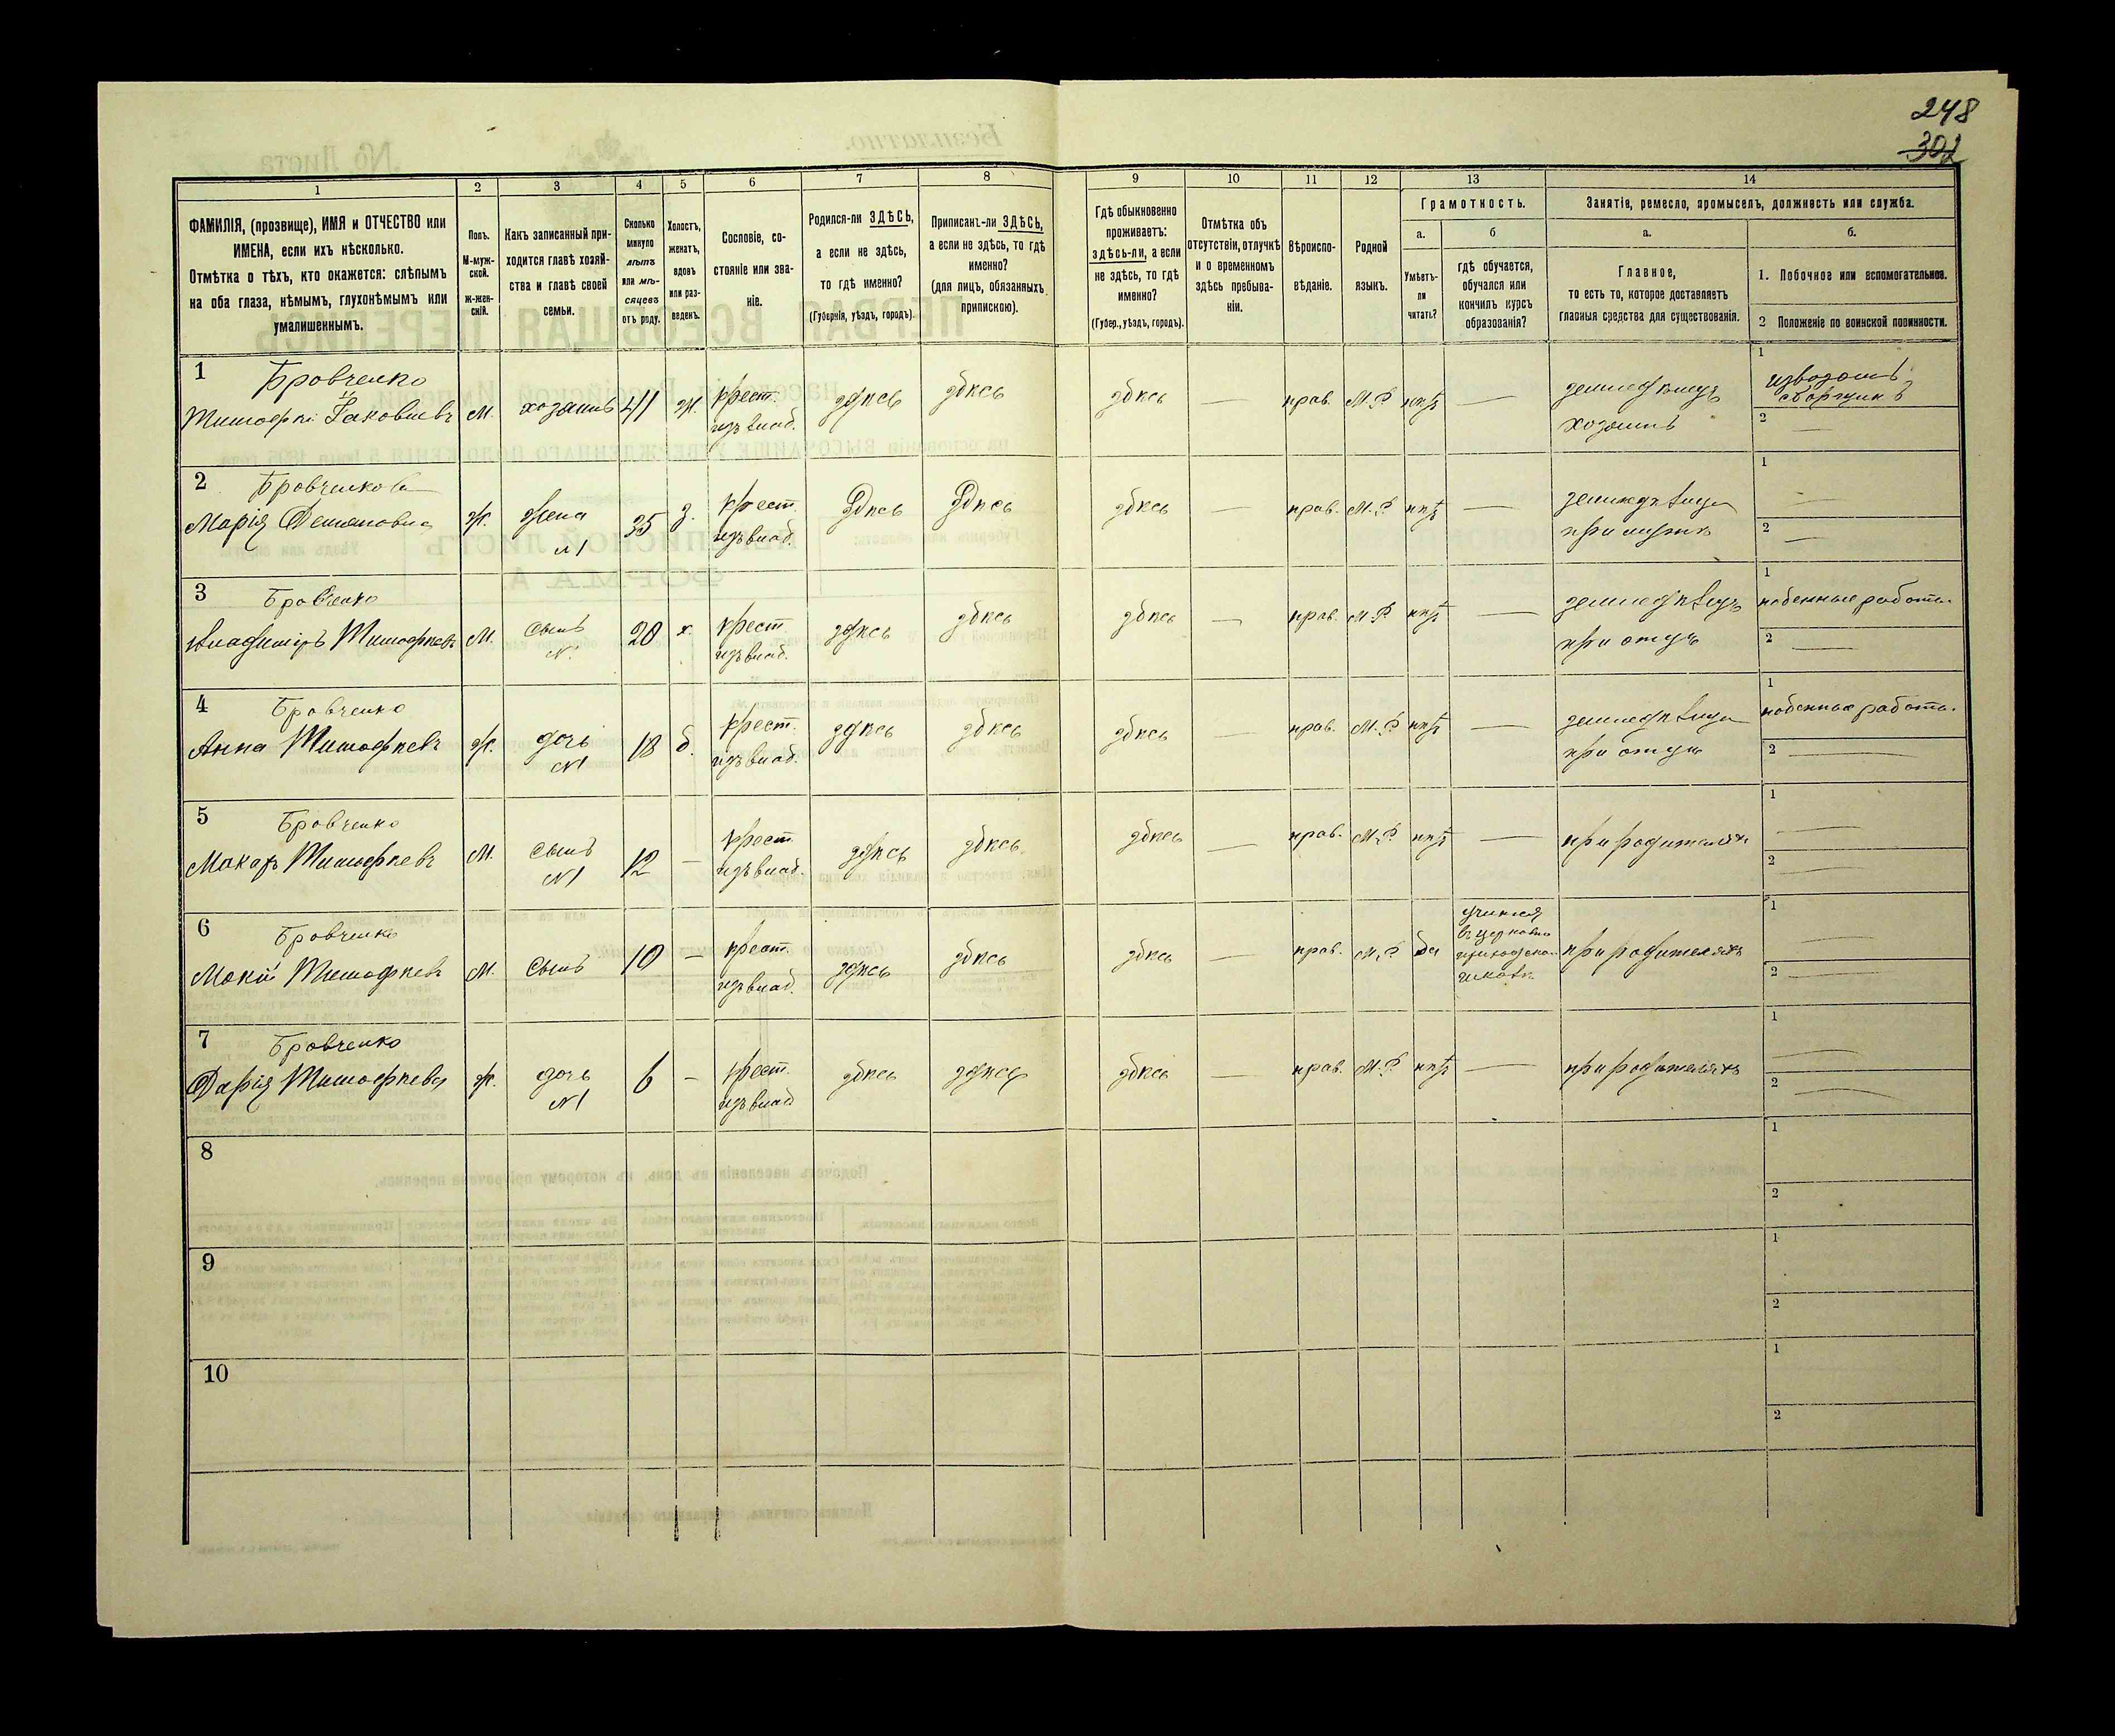 248
302
1
2
3
4
5
6
7
8
9
10
11
12
13
14
ФАМИЛІЯ, (прозвище), ИМЯ и ОТЧЕСТВО или
ИМЕНА, если ихъ нѣсколько.
Отмѣтка о тѣхъ, кто окажется: слѣпымъ
на оба глаза, нѣмымъ, глухонѣмымъ или
умалишеннымъ.
Полъ.
М-муж-
ской.
ж-жен-
скій.
Какъ записанный при-
ходится главѣ хозяй-
ства и главѣ своей
семьи.
Сколько
минуло
лѣтъ
или мѣ-
сяцевъ
отъ роду.
Холостъ,
женатъ,
вдовъ
или раз-
веденъ.
Сословіе, со-
стояніе или зва-
ніе.
Родился-ли ЗДѢСЬ,
а если не здѣсь,
то гдѣ именно?
(Губернія, уѣздъ, городъ).
Приписанъ-ли ЗДѢСЬ,
а если не здѣсь, то гдѣ
именно?
(для лицъ, обязанныхъ
припискою).
Гдѣ обыкновенно
проживаетъ:
здѣсь-ли, а если
не здѣсь, то гдѣ
именно?
(Губер., уѣздъ, городъ).
Отмѣтка объ
отсутствіи, отлучкѣ
и о временномъ
здѣсь пребыва-
ніи.
Вѣроиспо-
вѣданіе.
Родной
языкъ.
Грамотность.
а.
Умѣетъ-
ли
читать?
б
гдѣ обучается,
обучался или
кончилъ курсъ
образованія?
Занятіе, ремесло, промыселъ, должность или служба.
а.
Главное,
то есть то, которое доставляетъ
главныя средства для существованія.
б.
1. Побочное или вспомогательное.
2 Положеніе по воинской повинности.
1 Бровченко
Тимофѣй Іаковлевъ
М. хозяинъ 41 ж. крест. здѣсь здѣсь здѣсь — прав. М.Р. нѣтъ —
изъ влад.
земледѣлецъ
хозяинъ
1 извозомъ
2 —
2 Бровченкова
Марія Демяновна
ж. жена 35 з. крест. здѣсь здѣсь здѣсь — прав. М.Р. нѣтъ —
N1 изъ влад.
земледѣлица
при мужѣ
1 —
2 —
3 Бровченко
Владиміръ Тимофѣевъ
М. сынъ 20 х. крест. здѣсь здѣсь здѣсь — прав. М.Р. нѣтъ —
изъ влад.
земледѣлецъ
при отцѣ
1 поденные работы
2 —
4 Бровченко
Анна Тимофѣевъ
ж. дочь 18 б. крест. здѣсь здѣсь здѣсь — прав. М.Р. нѣтъ —
N1 изъ влад.
земледѣлица
при отцѣ
1 поденные работы.
2 —
5 Бровченко
Макаръ Тимофѣевъ
М. сынъ 12 — крест. здѣсь здѣсь здѣсь — прав. М.Р. нѣтъ —
N1 изъ влад.
при родителяхъ
1 —
2 —
6 Бровченко
Мокій Тимофѣевъ
М. сынъ 10 — крест. здѣсь здѣсь здѣсь — прав. М.Р. да
изъ влад.
учился
въ церковно
приходской
школѣ
при родителяхъ
1 —
2 —
7 Бровченко
Дарія Тимофѣева
ж. дочь 6 — крест. здѣсь здѣсь здѣсь — прав. М.Р. нѣтъ —
N1 изъ влад
при родителяхъ
1 —
2 —
8
1
2
9
1
2
10
1
2